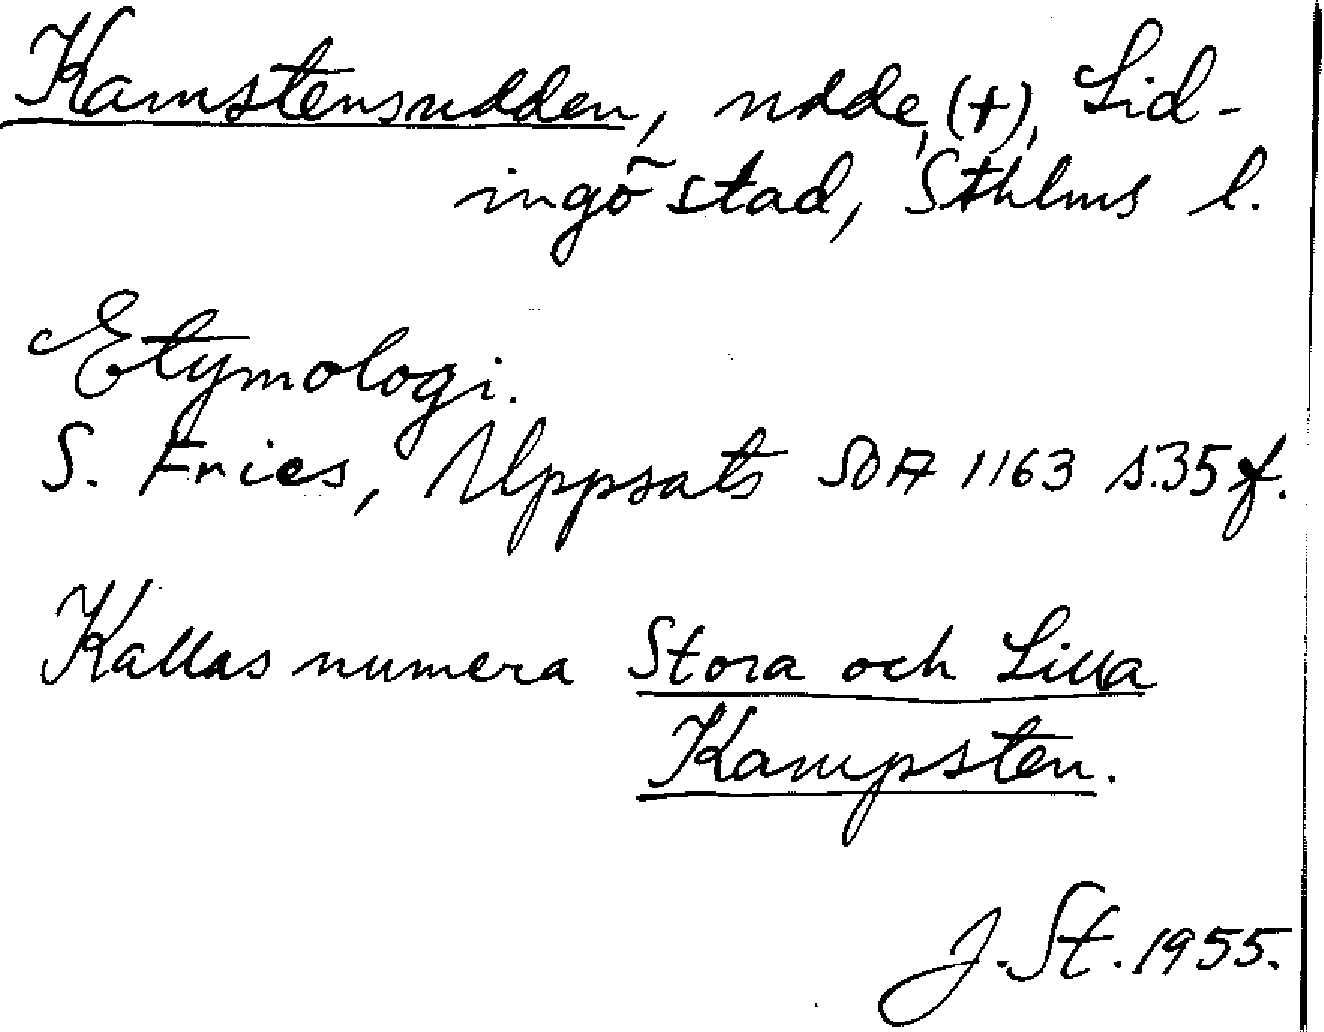 Kamstensudden, udde, (+), Lid-
ingö stad, Sthlms l.
Etymologi.
S. Fries, Uppsats SOA 1163 s.35 f.
Kallas numera Stora och Lilla
Kampsten.
J. St. 1955.